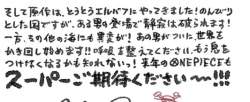 そして原作は、とうとうエルバフにやってきました!のんびり
とした国ですが、ある男の登場で静寂は破られます!
一方、その他の海にも異変が!あの男がついに、世界を
かき回し始めます!!呼吸を整えてください、もう息を
つけなくなるかも知れないっ!来年のONEPIECEも
スーパーご期待ください〜!!!